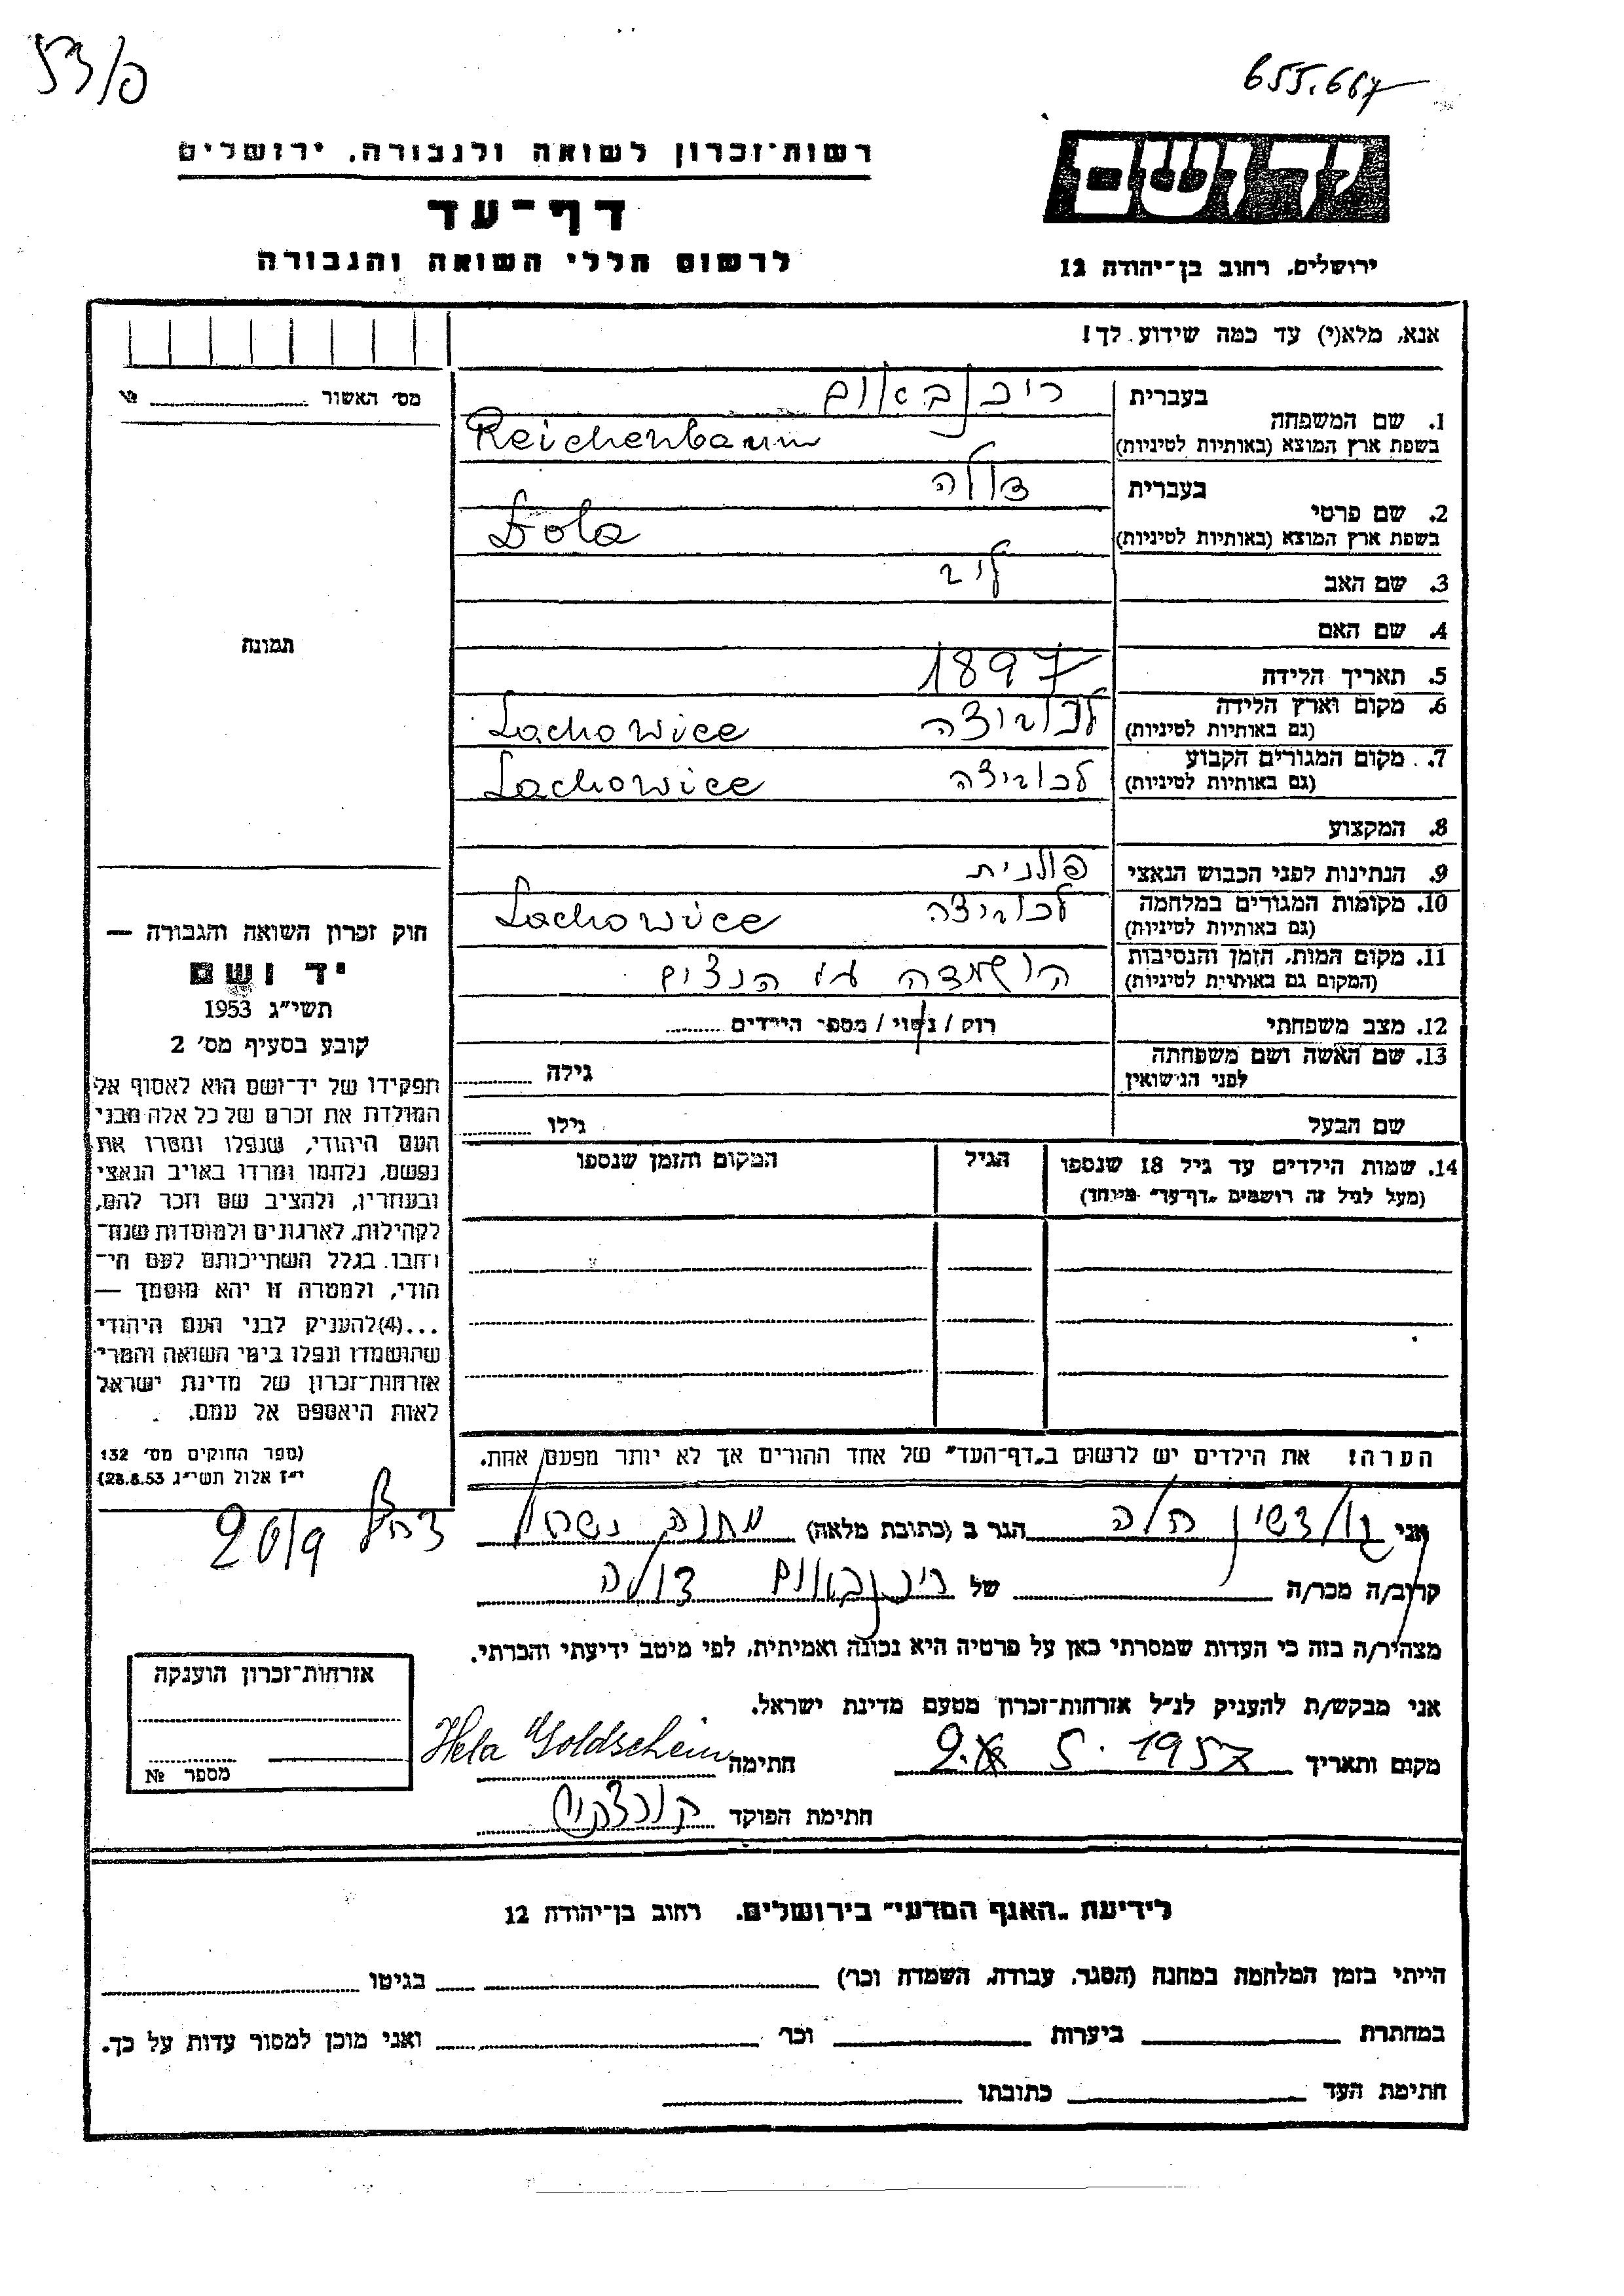 53/פ
655.667
רשות־זכרון לשואה ולגבורה, ירושלים
דף־עד
לרשום חללי השואה והגבורה
יד ושם
ירושלים, רחוב בן־יהודה 12
אנא, מלא(י) עד כמה שידוע לך!
מס׳ האשור № 
1. שם המשפחה בעברית רייכנבאום
בשפת ארץ המוצא (באותיות לטיניות) Reichenbaum
2. שם פרטי בעברית דולה
בשפת ארץ המוצא (באותיות לטיניות) Dola
3. שם האב לייב
4. שם האם
5. תאריך הלידה 1897
6. מקום וארץ הלידה
(גם באותיות לטיניות) לכוביצה Lachowice
7. מקום המגורים הקבוע
(גם באותיות לטיניות) לכוביצה Lachowice
8. המקצוע
9. הנתינות לפני הכבוש הנאצי פולנית
10. מקומות המגורים במלחמה
(גם באותיות לטיניות) לכוביצה Lachowice
11. מקום המות, הזמן והנסיבות
(המקום גם באותיות לטיניות) הושמדה ע״י הנצים
12. מצב משפחתי רוק / נשוי / מספר הילדים
13. שם האשה ושם משפחתה
לפני הנישואין גילה
שם הבעל גילו
14. שמות הילדים עד גיל 18 שנספו הגיל המקום והזמן שנספו
(מעל לגיל זה רושמים „דף־עד״ מיוחד)
הערה! את הילדים יש לרשום ב„דף־העד״ של אחד ההורים אך לא יותר מפעם אחת.
תמונה
חוק זכרון השואה והגבורה —
יד ושם
תשי״ג 1953
קובע בסעיף מס׳ 2
תפקידו של יד־ושם הוא לאסוף אל
המולדת את זכרם של כל אלה מבני
העם היהודי, שנפלו ומסרו את
נפשם, נלחמו ומרדו באויב הנאצי
ובעוזריו, ולהציב שם וזכר להם,
לקהילות, לארגונים ולמוסדות שנח־
רחבו. בגלל השתייכותם לעם הי־
הודי, ולמטרה זו יהא מוסמך —
...(4)להעניק לבני העם היהודי
שהושמדו ונפלו בימי השואה והמרי
אזרחות־זכרון של מדינת ישראל
לאות היאספם אל עמם.
(ספר החוקים מס׳ 132
י״ז אלול תשי״ג 28.8.53)
אני גולדשין הלה הגר ב (כתובת מלאה)
20/9
קרוב/ה מכר/ה של רייכנבאום דולה
מצהיר/ה בזה כי העדות שמסרתי כאן על פרטיה היא נכונה ואמיתית, לפי מיטב ידיעתי והכרתי.
אני מבקש/ת להעניק לנ״ל אזרחות־זכרון מטעם מדינת ישראל.
מקום ותאריך 5. 1957 חתימה Hela Goldschein
חתימת הפוקד
אזרחות־זכרון הוענקה
מספר №
לידיעת „האגף המדעי״ בירושלים. רחוב בן־יהודה 12
הייתי בזמן המלחמה במחנה (הסגר, עבודת, השמדה וכר׳) בגיטו
במחתרת ביערות וכר׳ ואני מוכן למסור עדות על כך.
חתימת העד כתובתו